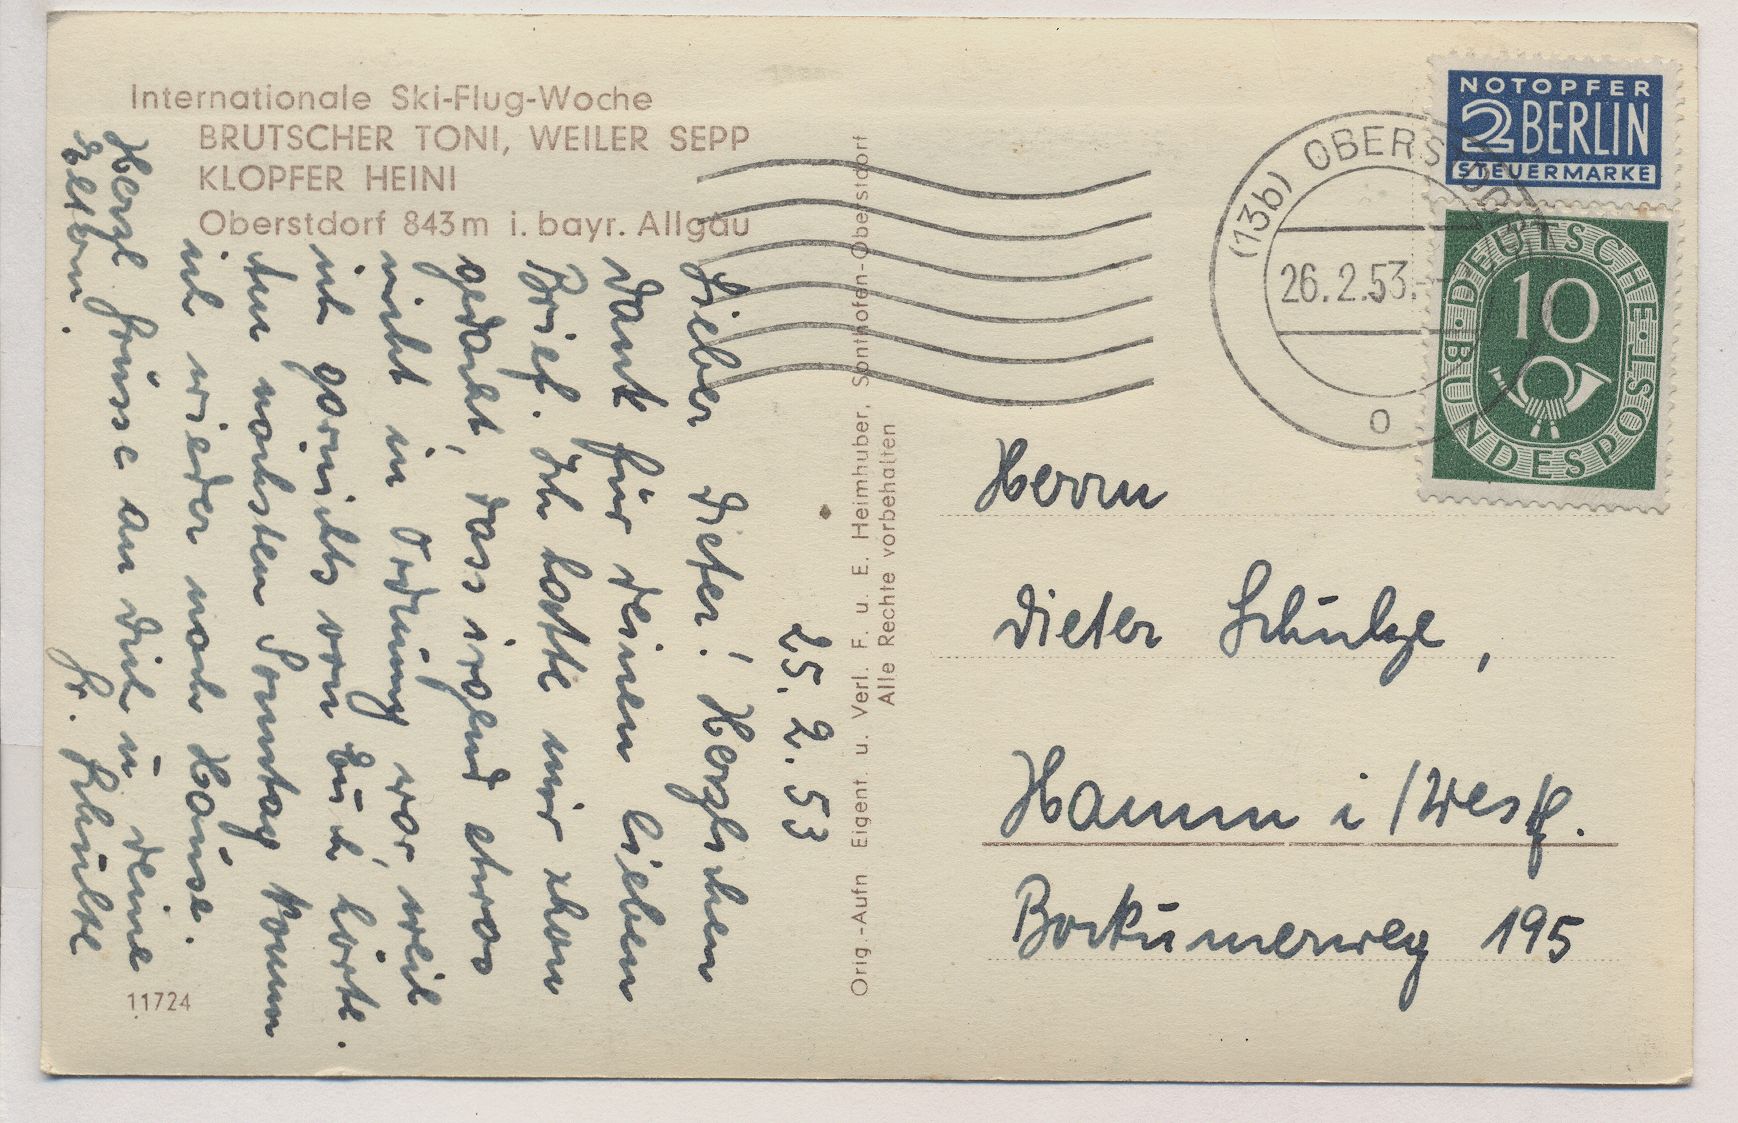 Internationale Ski-Flug-Woche
BRUTSCHER TONI, WEILER SEPP
KLOPFER HEINI
Oberstdorf 843m i. bayr. Allgäu
25. 2. 53
Lieber Dieter! Herzlichen
Dank für deinen lieben
Brief. Ich hatte mir schon
gedacht, dass irgend etwas
nicht in Ordnung war, weil
ich garnichts von Euch hörte.
Am nächsten Sonntag komm
ich wieder nach Hause.
Herzl. Grüsse an dich u. deine
Eltern.
Fr. Schulte
11724
Orig.-Aufn Eigent. u. Verl. F. u. E. Heimhuber, Sonthofen-Oberstdorf
Alle Rechte vorbehalten
(13b) OBERSTDORF
26.2.53.
o
NOTOPFER
2 BERLIN
STEUERMARKE
DEUTSCHE BUNDESPOST
10
Herrn
Dieter Schulze,
Hamm i/Westf.
Borkumerweg 195